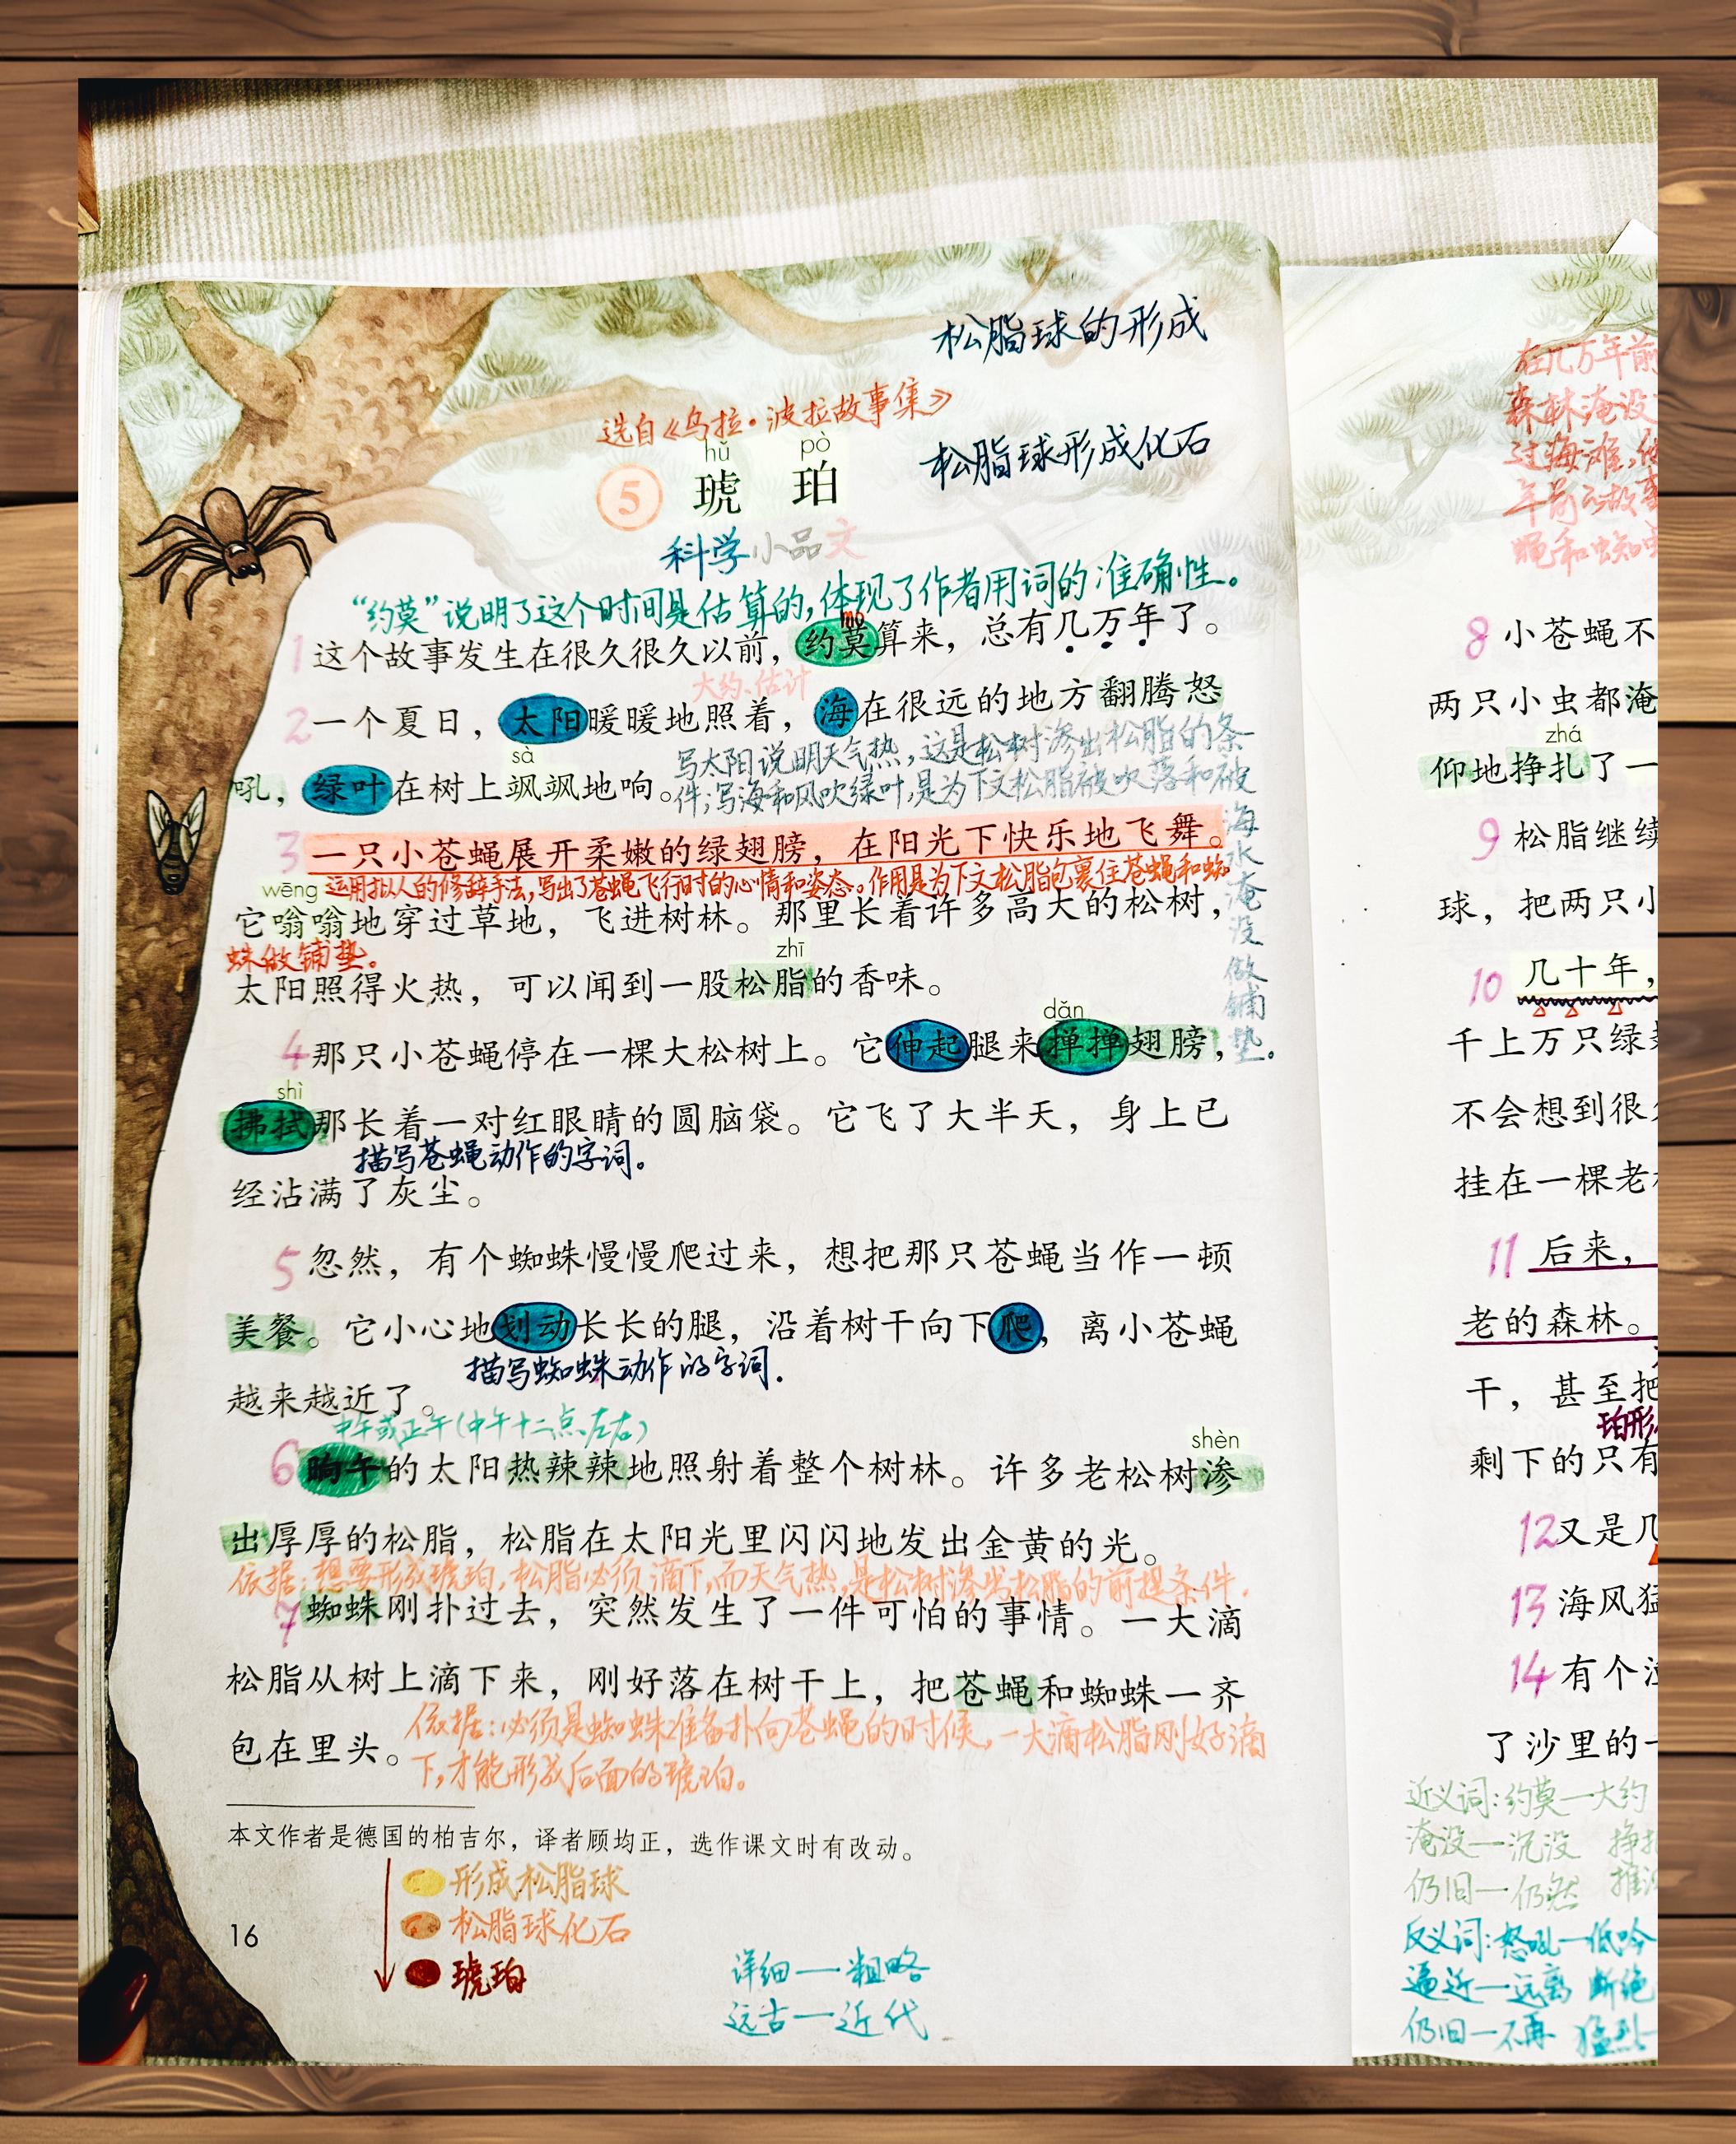 松脂球的形成
选自《乌拉·波拉故事集》
松脂球形成化石
hǔ pò
5 琥珀
科学小品文
“约莫”说明了这个时间是估算的,体现了作者用词的准确性。
mò
1 这个故事发生在很久很久以前，约莫算来，总有几万年了。
大约、估计
2 一个夏日，太阳暖暖地照着，海在很远的地方翻腾怒
sà
吼，绿叶在树上飒飒地响。
写太阳说明天气热,这是松树渗出松脂的条
件;写海和风吹绿叶,是为下文松脂被吹落和被
海水淹没做铺垫.
3 一只小苍蝇展开柔嫩的绿翅膀，在阳光下快乐地飞舞。
运用拟人的修辞手法,写出了苍蝇飞行时的心情和姿态。作用是为下文松脂包裹住苍蝇和蜘
蛛做铺垫。
wēng
它嗡嗡地穿过草地，飞进树林。那里长着许多高大的松树，
zhī
太阳照得火热，可以闻到一股松脂的香味。
dǎn
4 那只小苍蝇停在一棵大松树上。它伸起腿来掸掸翅膀，
shì
拂拭那长着一对红眼睛的圆脑袋。它飞了大半天，身上已
描写苍蝇动作的字词。
经沾满了灰尘。
5 忽然，有个蜘蛛慢慢爬过来，想把那只苍蝇当作一顿
美餐。它小心地划动长长的腿，沿着树干向下爬，离小苍蝇
描写蜘蛛动作的字词.
越来越近了。
中午或正午(中午十二点左右)
shèn
6 晌午的太阳热辣辣地照射着整个树林。许多老松树渗
出厚厚的松脂，松脂在太阳光里闪闪地发出金黄的光。
依据:想要形成琥珀,松脂必须滴下,而天气热,是松树渗出松脂的前提条件.
7 蜘蛛刚扑过去，突然发生了一件可怕的事情。一大滴
松脂从树上滴下来，刚好落在树干上，把苍蝇和蜘蛛一齐
包在里头。
依据:必须是蜘蛛准备扑向苍蝇的时候,一大滴松脂刚好滴
下,才能形成后面的琥珀。
本文作者是德国的柏吉尔，译者顾均正，选作课文时有改动。
形成松脂球
松脂球化石
琥珀
16
详细—粗略
远古—近代
在几万年前
森林淹没
过海滩,
年前
蝇和蜘
8 小苍蝇不
两只小虫都淹
zhá
仰地挣扎了一
9 松脂继续
球，把两只小
10 几十年，
千上万只绿
不会想到很
挂在一棵老
11 后来，
老的森林。
干，甚至把
珀形
剩下的只有
12 又是几
13 海风猛
14 有个
了沙里的一
近义词:约莫—大约
淹没—沉没 挣扎
仍旧—仍然 推
反义词:怒吼—低吟
逼近—远离 断绝
仍旧—不再 猛烈—